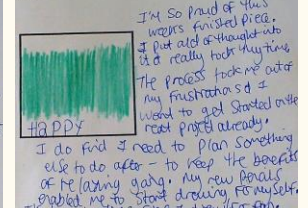 I'm so proud of this
weeks finished piece.
I put a lot of thought into
it & really took my time.
The process took me out of
my frustrations & I
want to get started on the
next project already.
HAPPY
I do find I need to plan something
else to do after - to keep the benefits
of relaxing going. My new pencils
enabled me to start drawing for myself.